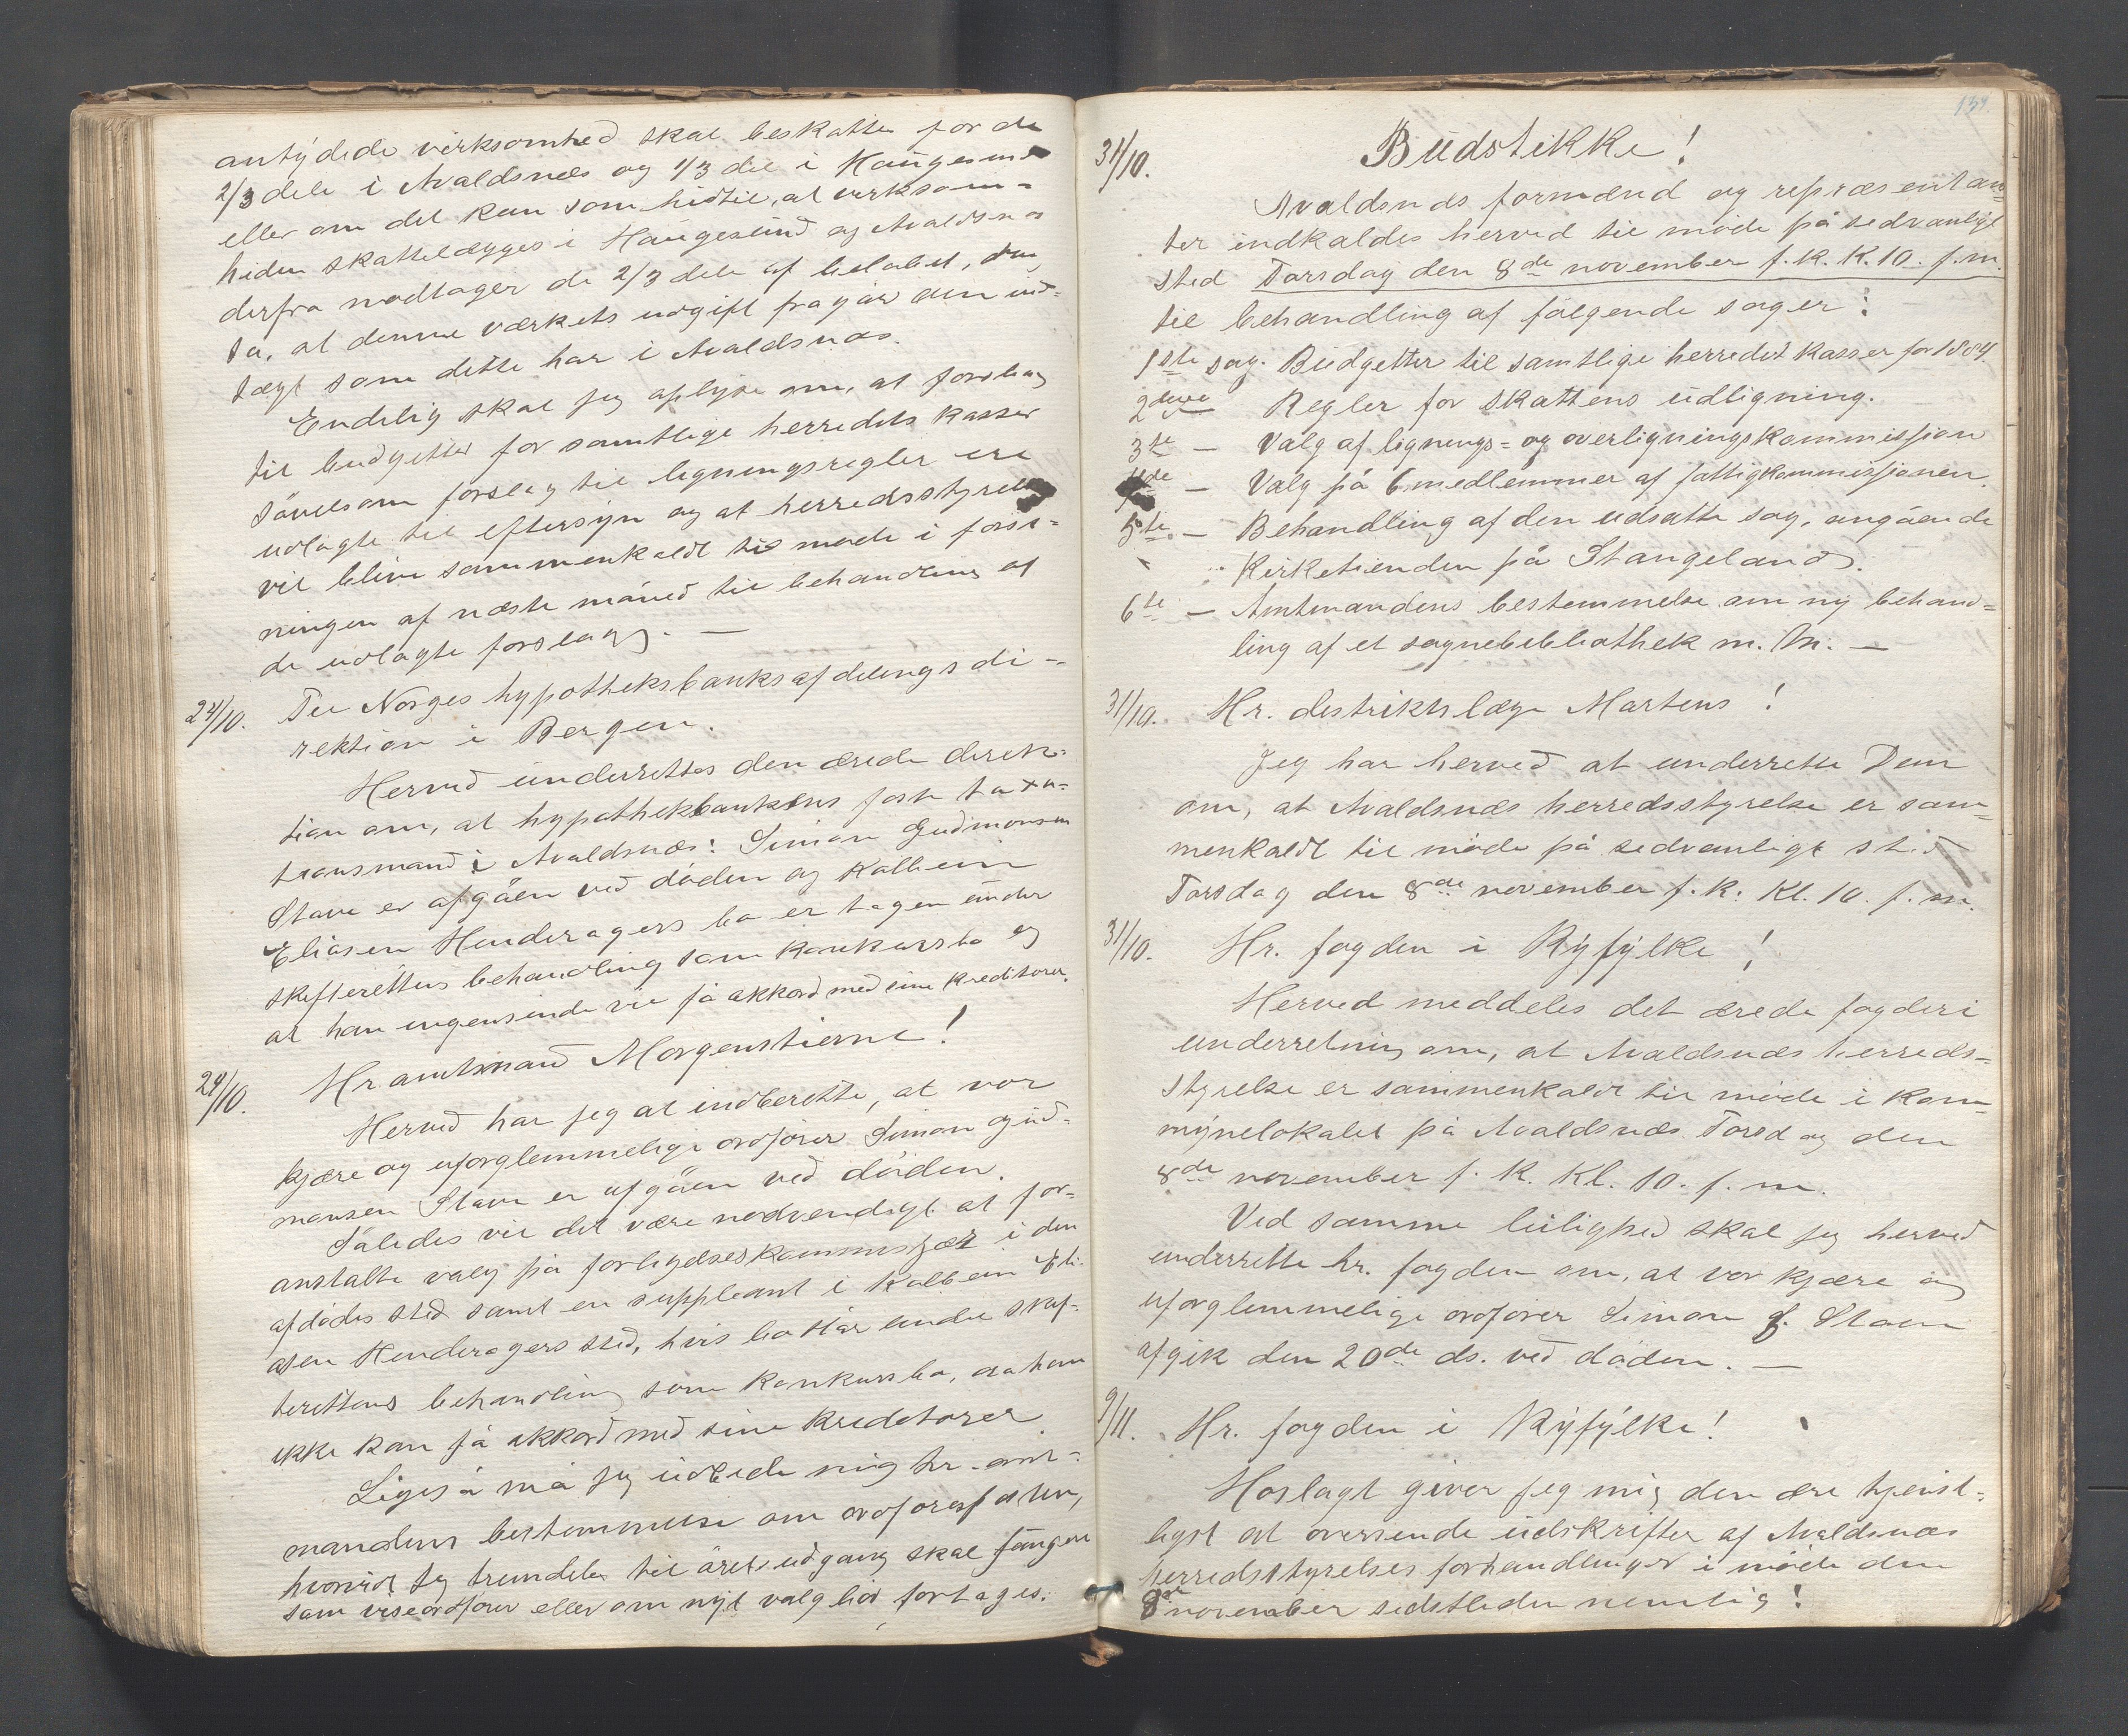 antydede virksomhed skal beskattes for de
2/3 dele i Avaldsnes og 1/3 del i Haugesund
eller om det kan som hidtil, at virksom-
heden skattelægges i Haugesund og Avaldsnæs
derfra modtager de 2/3 dele af beløbet,
da, at denne værkets udgift fragår den ind-
tægt som dette har i Avaldsnæs.
Endelig skal jeg oplyse om, at forslag
til budgetter for samtlige herredets kasser
såvelsom forslag til ligningsregler ere
udlagte til eftersyn og at herredsstyrelsen
vil blive sammenkaldt til møde i førs-
ningen af næste måned til behandling af
de udlagte forslag. —
24/10. Til Norges hypotheksbanks afdelings di-
rektion i Bergen.
Herved underrettes den ærede direk-
tion om, at hypothekbankens faste taxa-
tionsmand i Avaldsnæs: Simon Gudmonsen
Stave er afgåen ved døden og Kolbein
Eliasen Hinderagers bo er tagen under
skifterettens behandling som konkursbo og
at han ingensinde vil få akkord med sine kreditorer.
24/10. Hr amtmand Morgenstierne!
Herved har jeg at indberette, at vor
kjære og uforglemmelige ordfører Simon Gud-
monsen Stave er afgåen ved døden.
Således vil det være nødvendigt at for-
anstalte valg på forligelseskommissær i den
afdødes sted samt en suppleant i Kolbein Eli-
asen Hinderagers sted, hvis bo står under skif-
terettens behandling som konkursbo, da han
ikke kan få akkord med sine kreditorer
Ligeså må jeg udbede mig hr. amt-
mandens bestemmelse om ordførerposten,
hvorvidt jeg fremdeles til årets udgang skal fungere
som viseordfører eller om nyt valg bør fortages.
134
31/10. Budstikke!
Avaldsnæs formænd og repræsentan-
ter indkaldes herved til møde på sedvanligt
sted Torsdag den 8de november f. k. K. 10. f. m.
til behandling af følgende sager:
1ste sag. Budgetter til samtlige herredet kasser for 1884.
2den Regler for skattens udligning.
3te — Valg af lignings- og overligningskommission
4de — Valg på 6 medlemmer af fattigkommissionen.
5te — Behandling af den udsatte sag, angående
Kirketienden på Stangeland.
6te — Amtmandens bestemmelse om ny behand-
ling af et sognebibliothek m. m. —
31/10. Hr. distriktslæge Martens!
Jeg har herved at underrette Dem
om, at Avaldsnæs herredsstyrelse er sam-
menkaldt til møde på sedvanligt sted
Torsdag den 8de november f. k. Kl. 10. f. m.
31/10. Hr. fogden i Ryfylke!
Herved meddeles det ærede fogderi
underretning om, at Avaldsnæs herreds-
styrelse er sammenkaldt til møde i kom-
mynelokalet på Avaldsnæs Torsdag den
8de november f. k. Kl. 10. f. m.
Ved samme leilighed skal jeg herved
underrette hr. fogden om, at vor kjære og
uforglemmelige ordfører Simon G. Stave
afgik den 20de ds. ved døden. —
9/11. Hr. fogden i Ryfylke!
Hoslagt giver jeg mig den ære tjenst-
ligst at oversende udskrifter af Avaldsnæs
herredsstyrelses forhandlinger i møde den
8de november sidstleden nemlig!